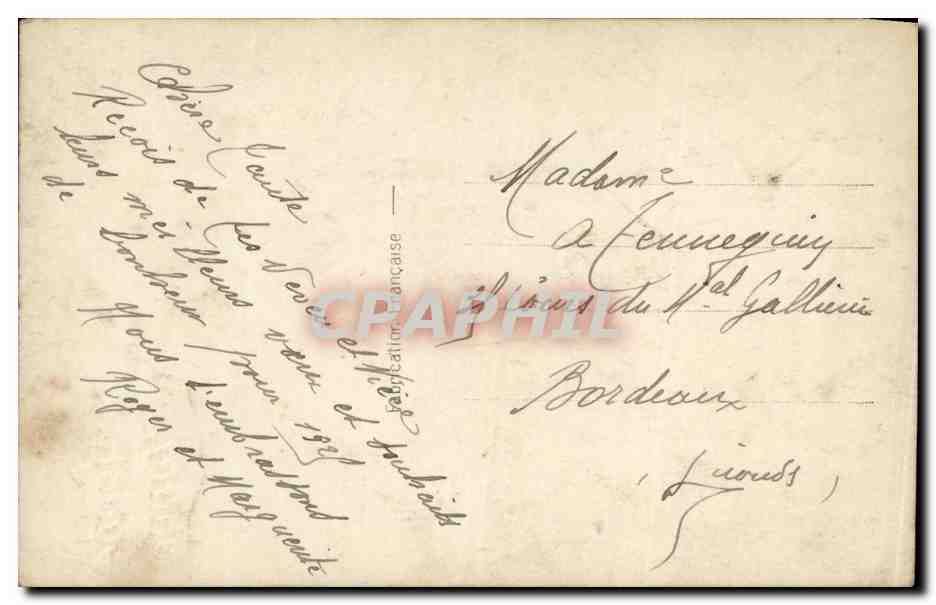 Chère Tante
Reçois de tes Neveu et Nièce
leurs meilleurs vœux et souhaits
de bonheur pour 1925
Nous t'embrassons
Roger et Marguerite
Fabrication Française
Madame
A
cours du Mal Gallieni
Bordeaux
(Gironde)
CPAPHIL